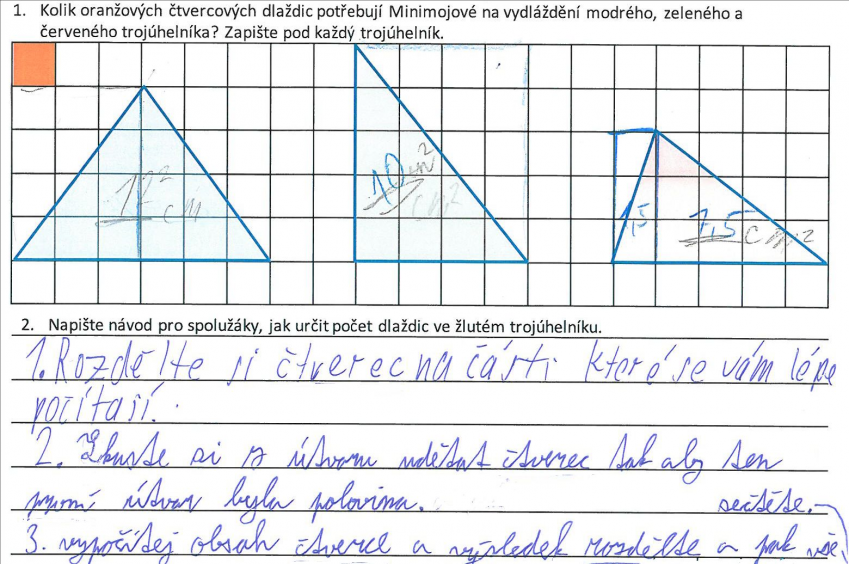 1. Kolik oranžových čtvercových dlaždic potřebují Minimojové na vydláždění modrého, zeleného a
červeného trojúhelníka? Zapište pod každý trojúhelník.
12 cm²
10 cm²
cm²
1,5
7,5 cm²
2. Napište návod pro spolužáky, jak určit počet dlaždic ve žlutém trojúhelníku.
1. Rozdělte si čtverec na části které se vám lépe
počítají.
2. Zkuste si z útvaru udělat čtverec tak aby ten
první útvar byla polovina.
sečtěte.
3. vypočítej obsah čtverce a výsledek rozdělte a pak vše